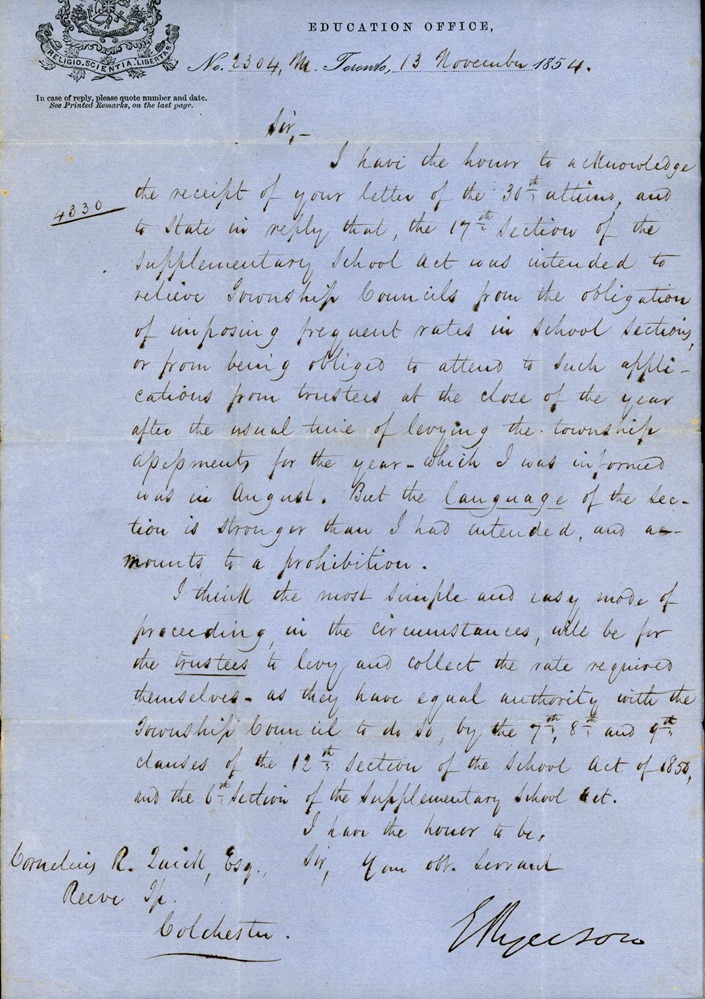 EDUCATION OFFICE,
RELIGIO.SCIENTIA.LIBERTAS
No. 2304, M. Toronto, 13 November 1854.
In case of reply, please quote number and date.
See Printed Remarks, on the last page.
Sir,-
I have the honor to acknowledge
4330
the receipt of your letter of the 30th ultimo, and
to State in reply that, the 17th Section of the
Supplementary School Act was intended to
relieve Township Councils from the obligation
of imposing frequent rates in School Sections,
or from being obliged to attend to such appli-
cations from trustees at the close of the year
after the usual time of levying the township
assessments for the year - which I was informed
was in August. But the language of the Sec-
tion is stronger than I had intended, and a-
mounts to a prohibition.
I think the most simple and easy mode of
proceeding, in the circumstances, will be for
the trustees to levy and collect the rate required
themselves - as they have equal authority with the
Township Council to do so, by the 7th, 8th and 9th
clauses of the 12th Section of the School Act of 1850,
and the 6th Section of the Supplementary School Act.
I have the honor to be,
Sir, Your obt. Servant
Cornelius R. Quick, Esq.,
Reeve Tp.
Colchester.
E Ryerson